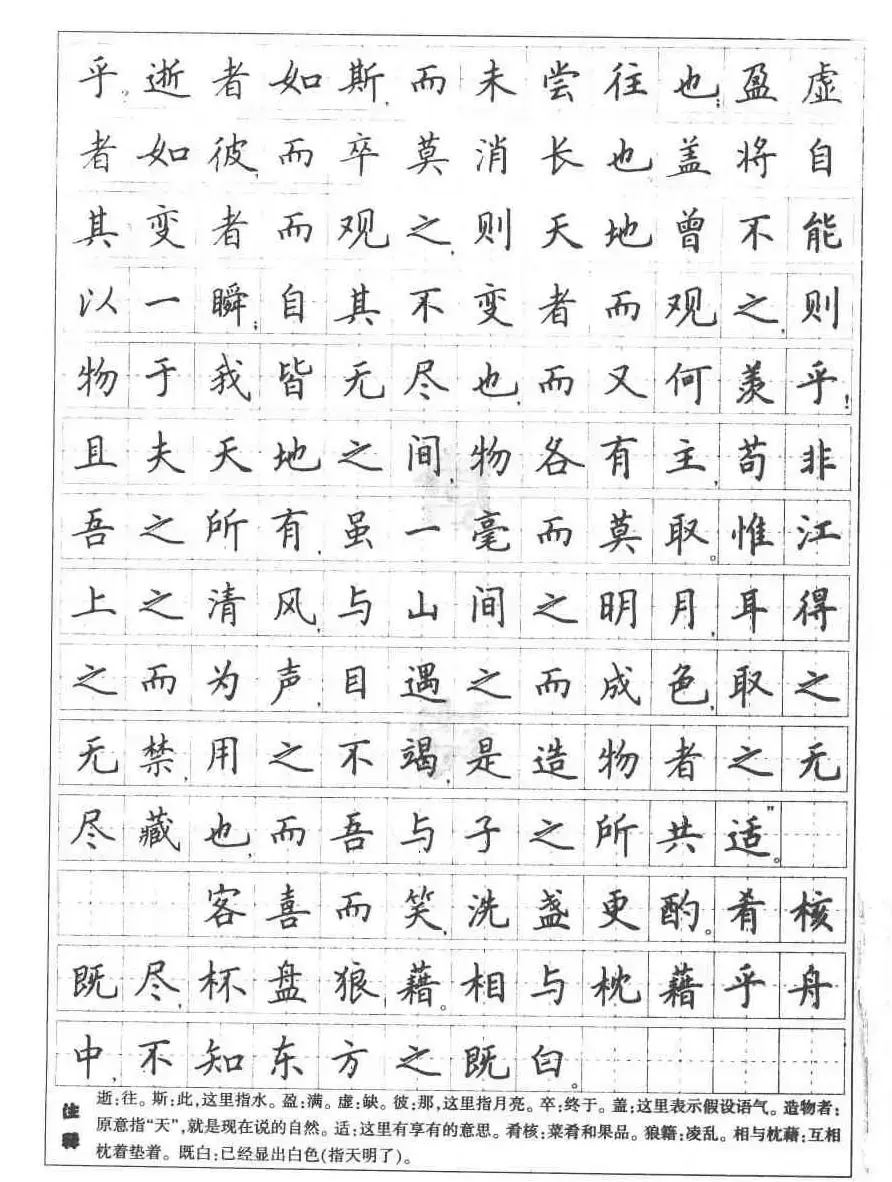 乎。逝者如斯,而未尝往也;盈虚
者如彼,而卒莫消长也盖将自
其变者而观之,则天地曾不能
以一瞬;自其不变者而观之,则
物于我皆无尽也,而又何羡乎!
且夫天地之间,物各有主,苟非
吾之所有,虽一毫而莫取。惟江
上之清风,与山间之明月,耳得
之而为声,目遇之而成色,取之
无禁,用之不竭,是造物者之无
尽藏也,而吾与子之所共适。”
客喜而笑,洗盏更酌。肴核
既尽,杯盘狼藉。相与枕藉乎舟
中,不知东方之既白。
注释
逝:往。斯:此,这里指水。盈:满。虚:缺。彼:那,这里指月亮。卒:终于。盖:这里表示假设语气。造物者:
原意指“天”,就是现在说的自然。适:这里有享有的意思。肴核:菜肴和果品。狼籍:凌乱。相与枕藉:互相
枕着垫着。既白:已经显出白色(指天明了)。